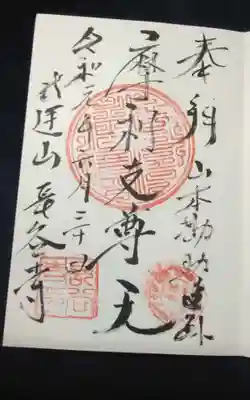 奉拝 山本勘助
摩利支尊天
令和元年六月二十日
武運山 長谷寺